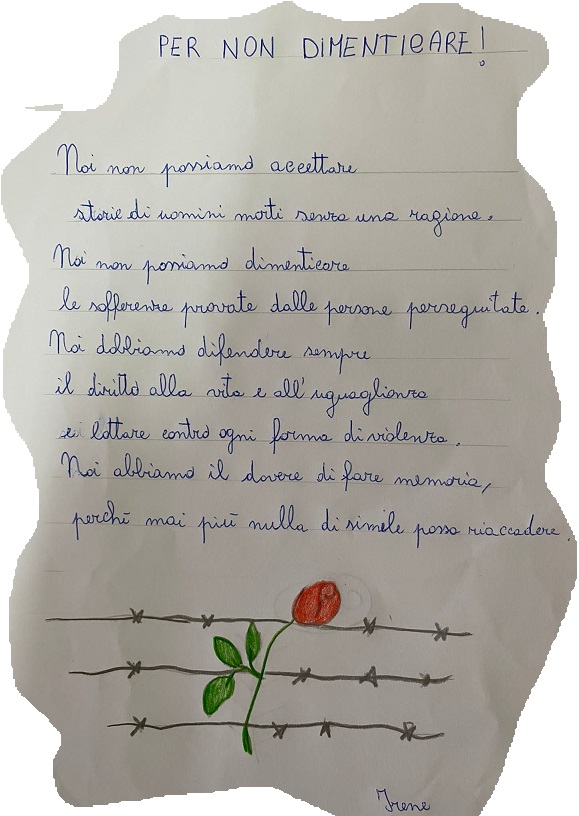 PER NON DIMENTICARE!
Noi non possiamo accettare
storie di uomini morti senza una ragione.
Noi non possiamo dimenticare
le sofferenze provate dalle persone perseguitate.
Noi dobbiamo difendere sempre
il diritto alla vita e all'uguaglianza
e lottare contro ogni forma di violenza.
Noi abbiamo il dovere di fare memoria,
perchè mai più nulla di simile possa riaccadere.
Irene